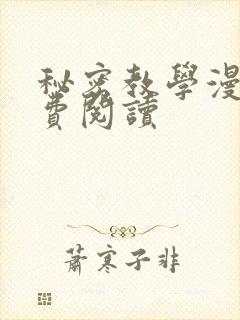 秘密教學漫
費閱讀
蕭寒子非